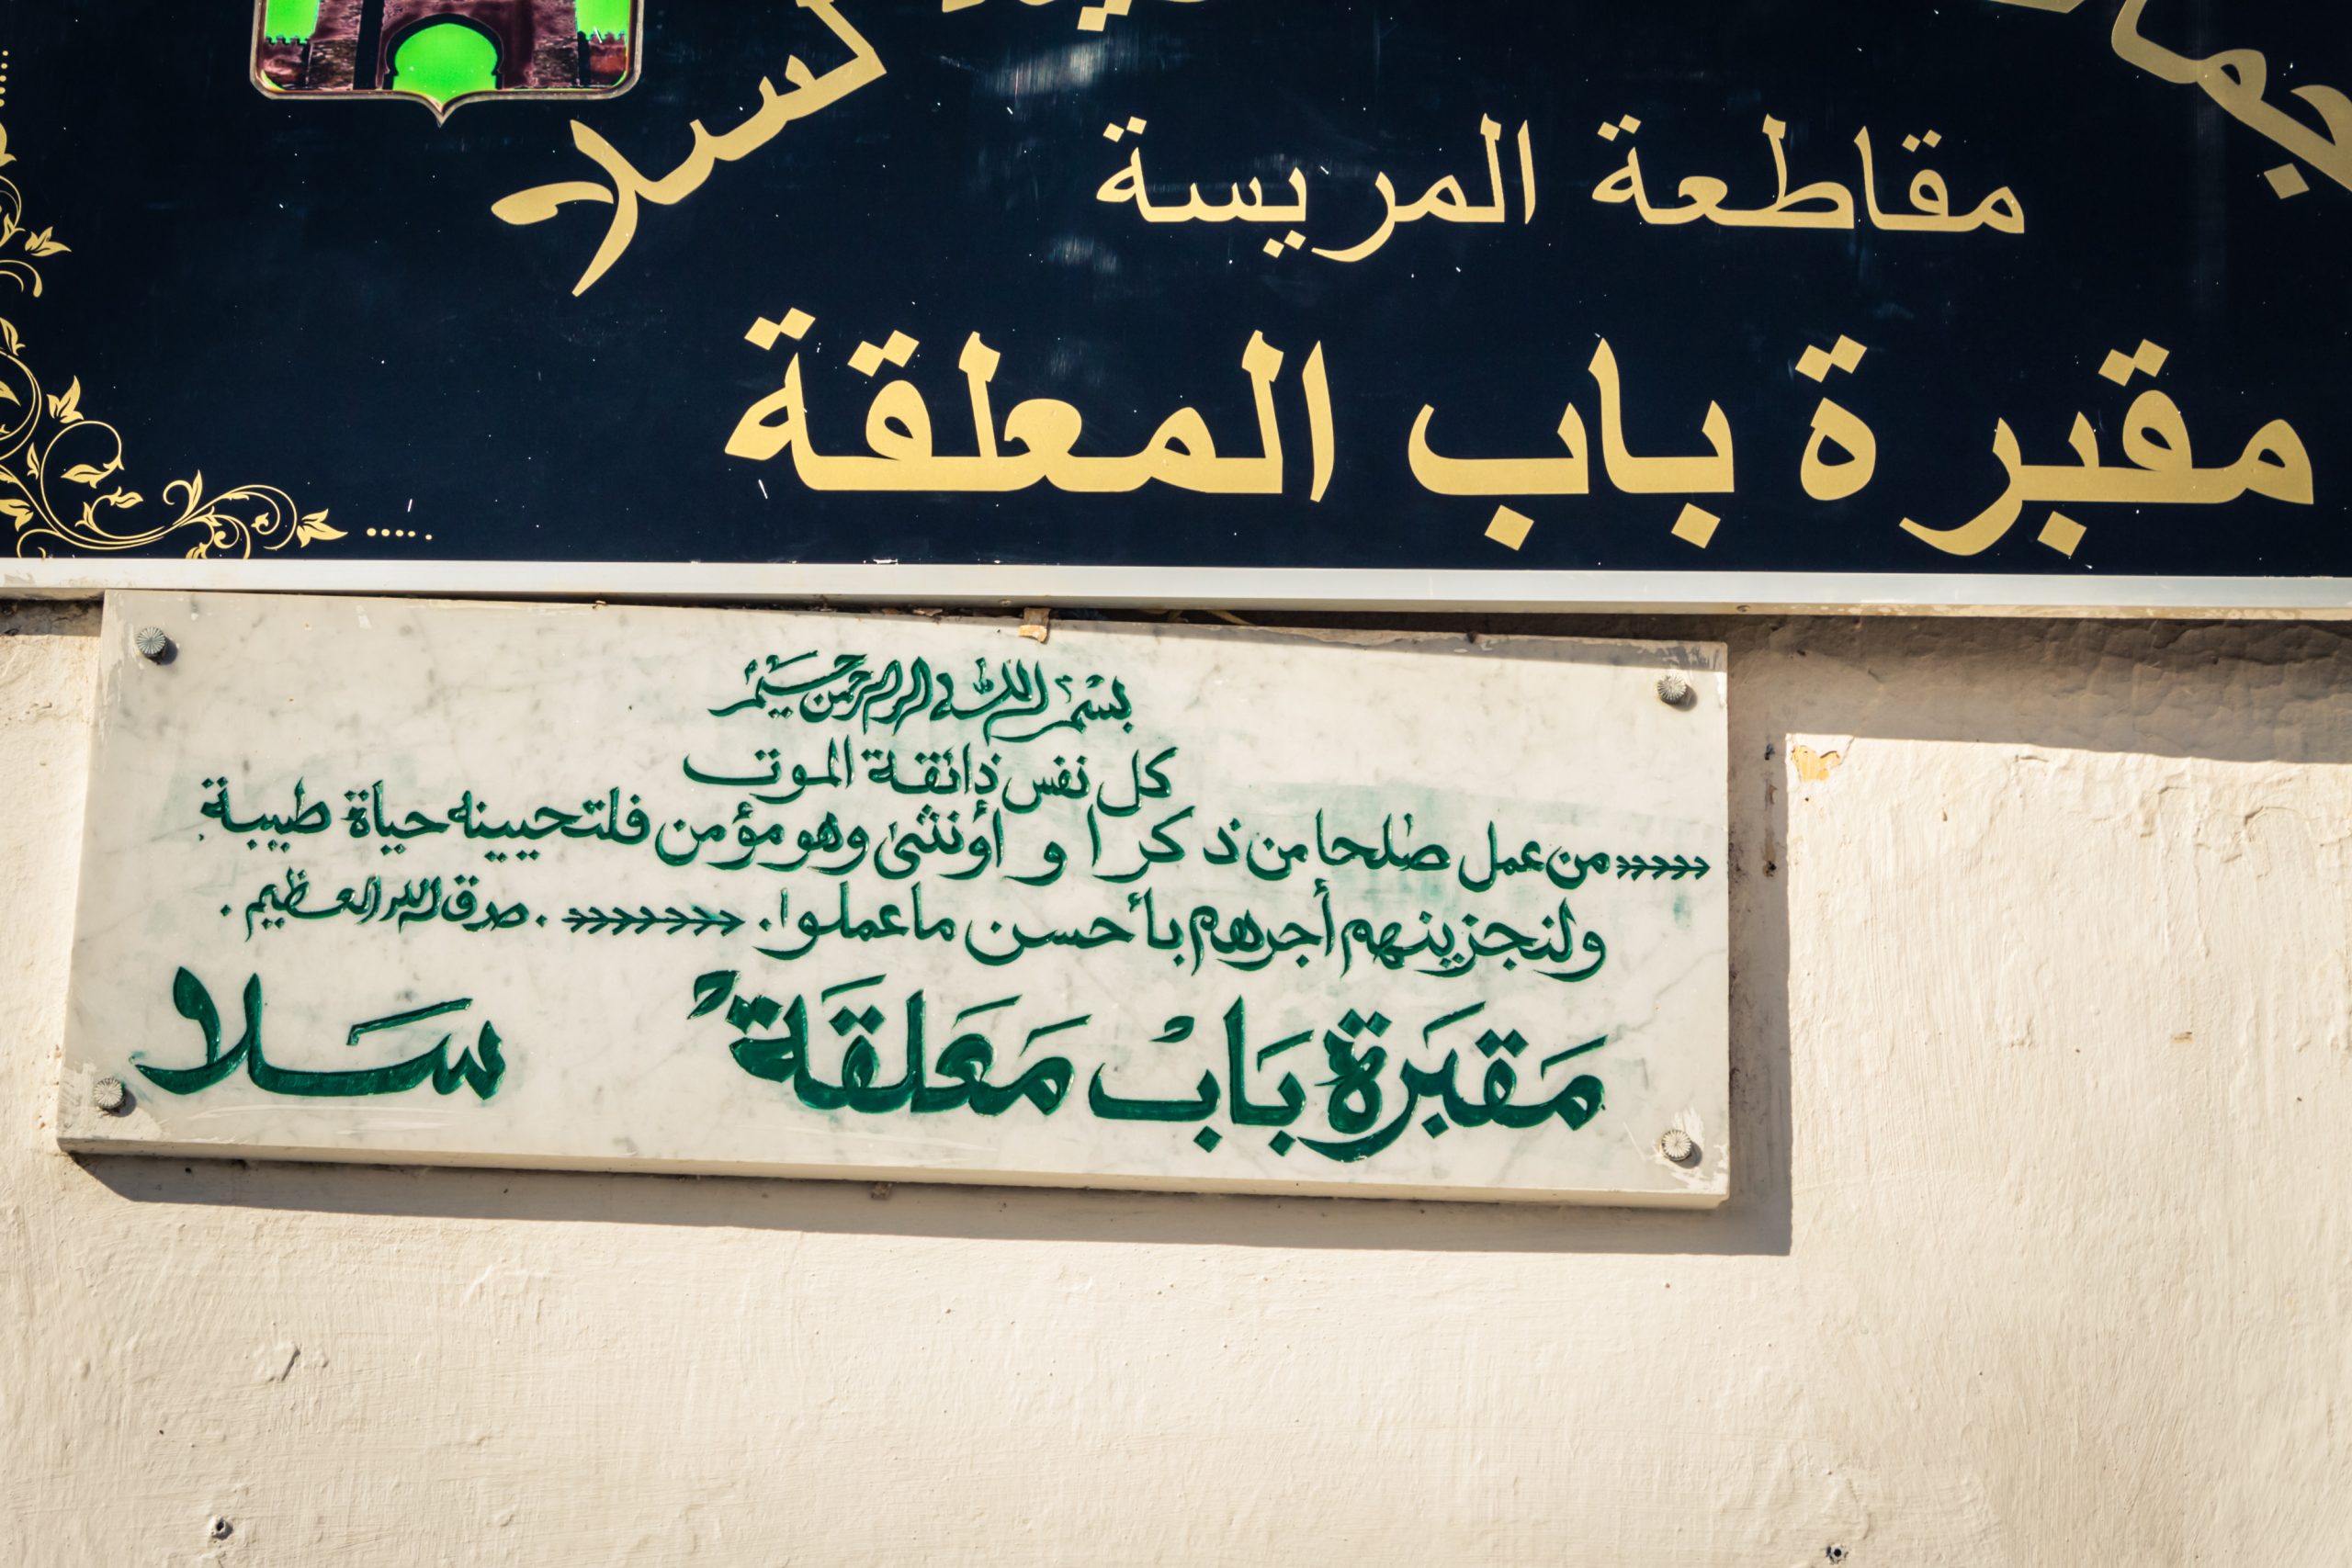 لسلا
مقاطعة المريسة
مقبرة باب المعلقة
بسم الله الرحمن الرحيم
كل نفس ذائقة الموت
من عمل صٰلحا من ذكرا و أونثى وهو مؤمن فلتحيينه حياة طيبة
ولنجزينهم أجرهم بأحسن ما عملوا. صدق الله العظيم.
مَقبَرة بَابْ مَعَلقَةْ سَلا